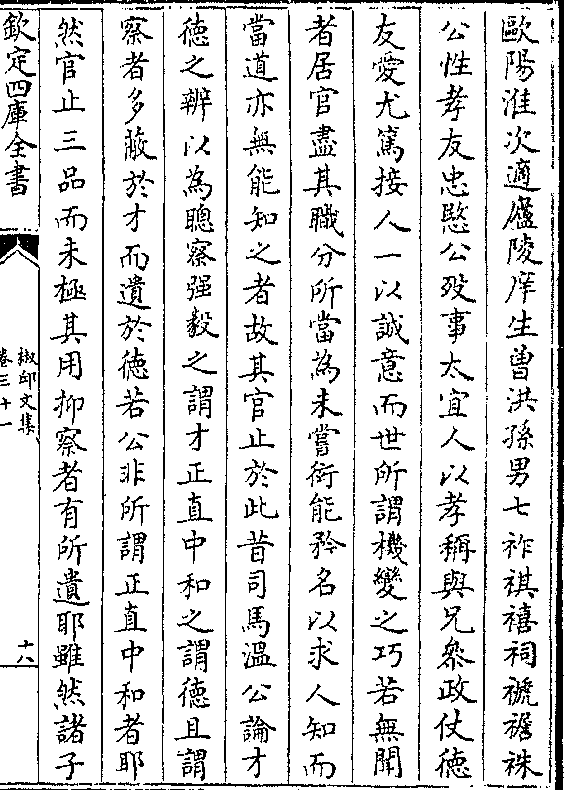 歐陽淮次適廬陵庠生曽洪孫男七祚祺禧祠禠䄡祩
公性孝友忠愍公歿事太宜人以孝稱與兄叅政仗德
友愛尤篤接人一以誠意而世所謂機變之巧若無聞
者居官盡其職分所當為未嘗衒能矜名以求人知而
當道亦無能知之者故其官止於此昔司馬溫公論才
徳之辨以為聰察强毅之謂才正直中和之謂徳且謂
察者多蔽於才而遺於徳若公非所謂正直中和者耶
然官止三品而未極其用抑察者有所遺耶雖然諸子
欽定四庫全書
椒邱文集
卷三十一
十六